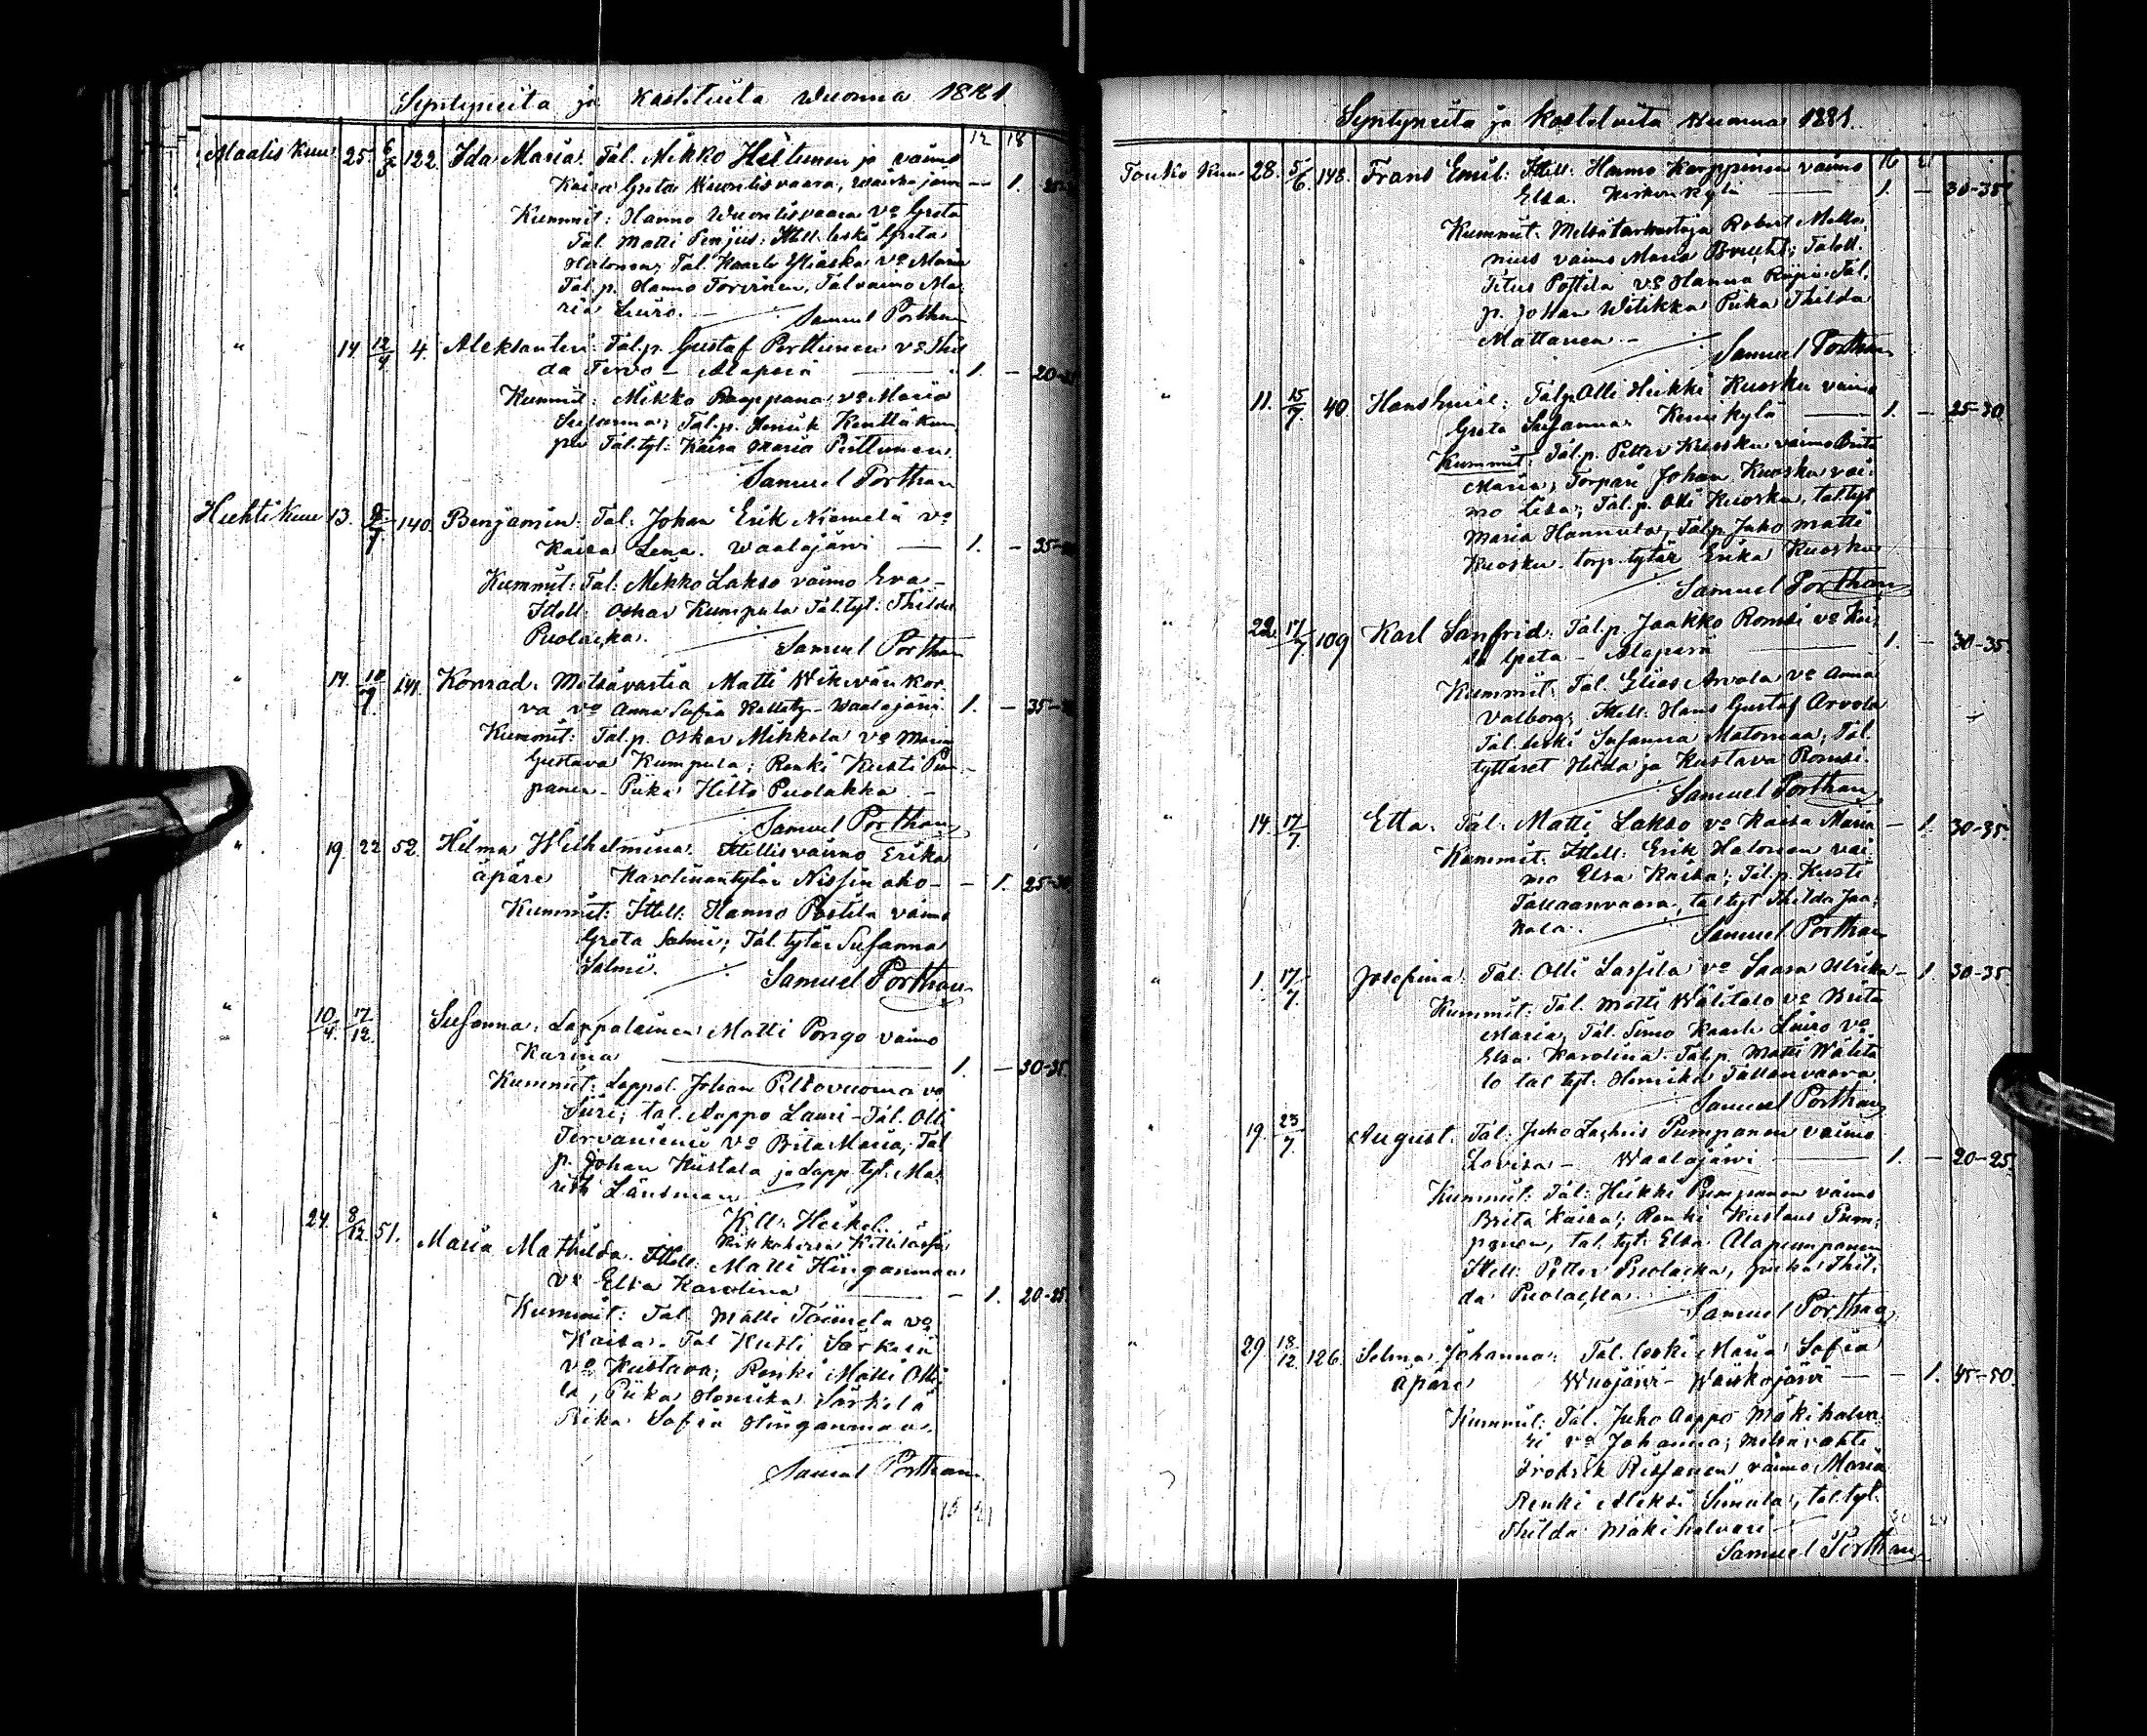 Syntyneitä ja Kastetuita Wuonna 1881
12 18
Maalis kuu 25. 6/5 122. Ida Maria. Tal. Mikko Hiltunen ja vaimo
Kaisa Greta Wuontisvaara, Waiskojärvi — 1.
Kummit: Hanno Wuontisvaara vo Greta
Tal. Matti Penjus; Itell. leski Greta
Halonen; Tal. Kaarlo vo Maria
Tal.p. Hanno Torvinen, Tal vaimo Ma-
ria Liiro. Samuel Porthan
" 14 12/4 4. Aleksanteri. Tal.p. Gustaf Perttunen vo Thil
da Tervo — Alaperä — 1. — 20-
Kummit: Mikko Raappana vo Maria
Susanna; Tal.p. Henrik Kenttäkum-
pu Tal.tyt: Kaisa Maria Perttunen.
Samuel Porthan
Huhti kuu 13. 140. Benjamin: Tal: Johan Erik Niemelä vo
Kaisa Lena. Waalajärvi — 1. — 35-
Kummit: Tal: Mikko Lakso vaimo Eva —
Itell: Oskar Kumpula Tal.tyt: Thilda
Puolakka. Samuel Porthan
" 14 10/7. 141. Konrad. Metsävartia Matti Wikevänkor-
va vo Anna Sofia Waalajärvi 1. — 35-
Kummit: Tal.p. Oskar Mikkola vo Maria
Gustava Kumpula; Renki Kusti Pum-
panen — Piika Hilta Puolakka —
Samuel Porthan
" 19. 22 52. Hilma Wilhelmina. Itellisvaimo Erika
äpärä Karolinantytär Nissinaho — — 1. 25-30
Kummit: Itell: Hanno Postila vaimo
Greta Salmi; Tal. tytär Susanna
Salmi. Samuel Porthan
" 10/4. 17/12. Susanna. Lappalainen Matti Pongo vaimo
Karina — 1. — 30-35.
Kummit: Lappal. Johan Peltovuoma vo
Siiri; tal. Aappo Lauri — Tal. Olli
Tervaniemi vo Brita Maria; Tal
p. Johan Kiistala ja Lapp. tyt. Ma-
reth Länsman
K. Heikel.
Kirkkoherra Kittilässä
" 24. 8/12. 51. Maria Mathilda. Itell: Matti Hinganmaa
vo Elsa Karolina — — 1. 20-25.
Kummit: Tal. Matti Törmelä vo
Kaisa. Tal Kusti Särkelä
vo Kustava; Renki Matti Olli
la, Piika Henrika Särkelä
Piika Sofia Hinganmaa.
Samuel Porthan
16 21
Syntyneitä ja kastetuita Wuonna 1881.
16 21
Touko kuu 28. 5/6. 148. Frans Emil: Itell: Hanno Karppinen vaimo
Elsa. Kirkonkylä — 1. — 30-35.
Kummit: Metsätarkastaja Robert Mella-
nius vaimo Maria Itell.
Titus Postila vo Hanna Tal.
p. Johan Witikka Piika Thilda
Mattanen — Samuel Porthan
" 11. 15/7. 40. Hans Emil: Tal.p. Olli Heikki Kuosku vaimo
Greta Susanna. Kemikylä — 1. — 25-30
Kummit: Tal.p. Petter Kuosku vaimo Brita
Maria; Torpari Johan Kuosku vai-
mo Lisa; Tal.p. Olli Kuosku, tal.tyt
Maria Hannula; Tal.p. Juho Matti
Kuosku — torp. tytär Erika Kuosku
Samuel Porthan
" 22. 17/7. 109 Karl Sanfrid: Tal.p. Jaakko Romsi vo
Greta — Alaperä — 1. — 30-35.
Kummit: Tal. Elias Arvola vo Anna
Valborg; Itell: Hans Gustaf Arvola
Tal. leski Susanna Matomaa; Tal.
tyttäret Hilda ja Kustava Romsi.
Samuel Porthan
" 14. 17/7. Etla. Tal: Matti Lakso vo Kaisa Maria — 1. 30-35.
Kummit: Itell: Erik Halonen vai-
mo Elsa Kaisa; Tal.p. Kusti
Tallaanvaara, tal tyt Thilda Jaa-
kola. Samuel Porthan
" 1. 17/7. Josefina: Tal. Olli Lassila vo Saara Ulrika — 1. 30-35.
Kummit: Tal. Matti Wälitalo vo Brita
Maria, Tal. Simo Kaarlo Liiro vo
Elsa Karolina. Tal.p. Matti Wälita
lo tal tyt. Henrika Tallanvaara.
Samuel Porthan
" 19. 23/7. August. Tal: Juho Zachris Pumpanen vaimo
Lovisa — Waalajärvi — 1. — 20-25.
Kummit: Tal: Heikki Pumpanen vaimo
Brita Kaisa; Renki Kustaus Pum-
panen, tal. tyt. Elsa Alapumpanen
Itell: Petter Puolakka, piika Thil-
da Puolakka. Samuel Porthan
" 29. 18/12. 126. Selma Johanna: Tal. leski Maria Sofia
äpärä Wuojärvi — Waiskojärvi — — 1. 45-50.
Kummit: Tal. Juho Aappo Mäkihalva-
ri vo Johanna; Metsävahti
Fredrik Rissanen vaimo Maria
Renki Aleksi Simula, tal. tyt.
Thilda Mäkihalvari —
Samuel Porthan